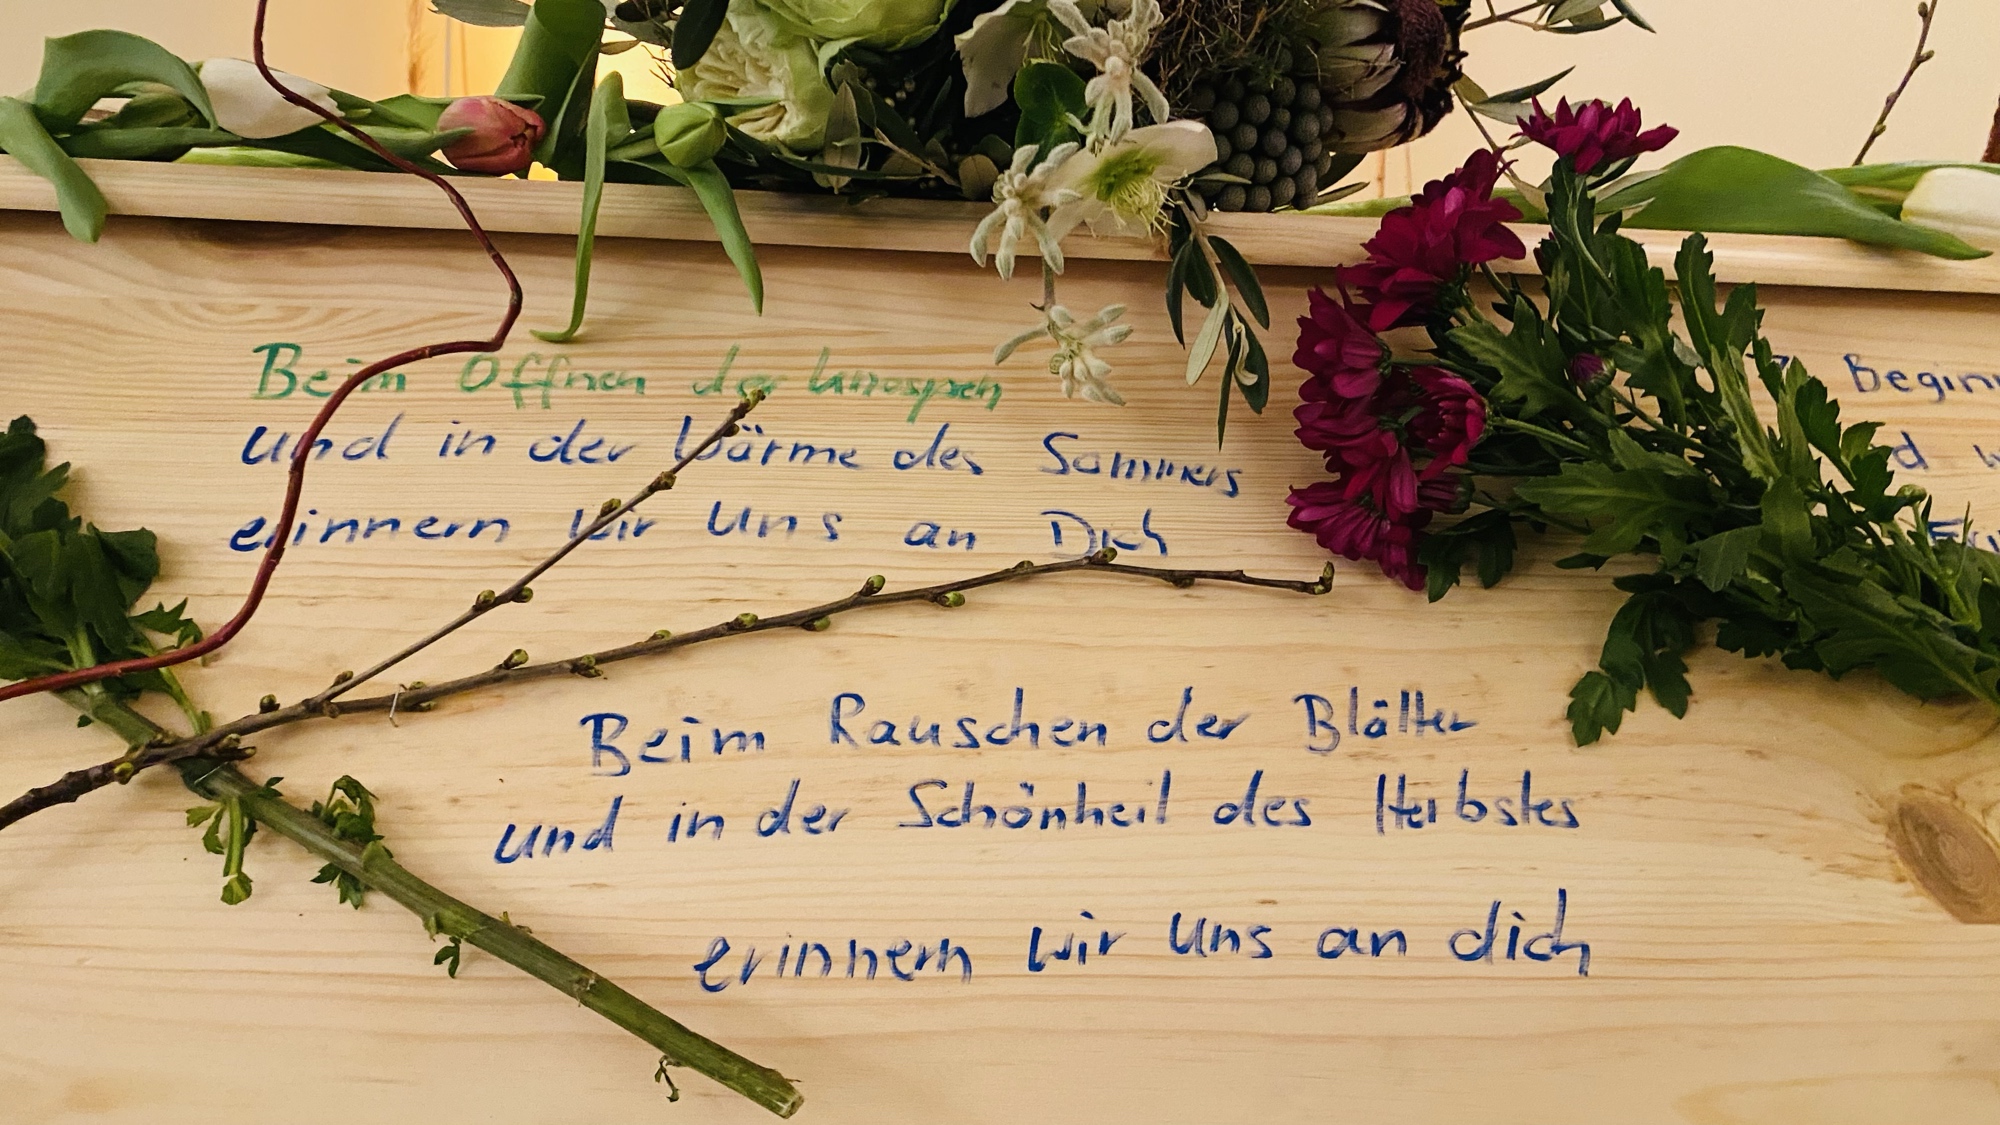 Beim Öffnen der Knospen
und in der Wärme des Sommers
erinnern wir uns an Dich
Beginn
Beim Rauschen der Blätter
und in der Schönheit des Herbstes
erinnern wir uns an dich